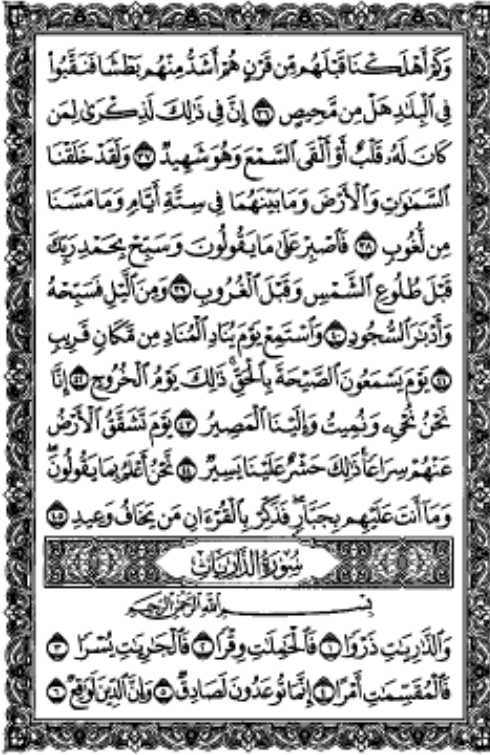 وَكَمْ أَهْلَكْنَا قَبْلَهُم مِّن قَرْنٍ هُمْ أَشَدُّ مِنْهُم بَطْشًا فَنَقَّبُوا۟
فِى ٱلْبِلَٰدِ هَلْ مِن مَّحِيصٍ ٣٦ إِنَّ فِى ذَٰلِكَ لَذِكْرَىٰ لِمَن
كَانَ لَهُۥ قَلْبٌ أَوْ أَلْقَى ٱلسَّمْعَ وَهُوَ شَهِيدٌ ٣٧ وَلَقَدْ خَلَقْنَا
ٱلسَّمَٰوَٰتِ وَٱلْأَرْضَ وَمَا بَيْنَهُمَا فِى سِتَّةِ أَيَّامٍ وَمَا مَسَّنَا
مِن لُّغُوبٍ ٣٨ فَٱصْبِرْ عَلَىٰ مَا يَقُولُونَ وَسَبِّحْ بِحَمْدِ رَبِّكَ
قَبْلَ طُلُوعِ ٱلشَّمْسِ وَقَبْلَ ٱلْغُرُوبِ ٣٩ وَمِنَ ٱلَّيْلِ فَسَبِّحْهُ
وَأَدْبَٰرَ ٱلسُّجُودِ ٤٠ وَٱسْتَمِعْ يَوْمَ يُنَادِ ٱلْمُنَادِ مِن مَّكَانٍ قَرِيبٍ
٤١ يَوْمَ يَسْمَعُونَ ٱلصَّيْحَةَ بِٱلْحَقِّ ۚ ذَٰلِكَ يَوْمُ ٱلْخُرُوجِ ٤٢ إِنَّا
نَحْنُ نُحْىِۦ وَنُمِيتُ وَإِلَيْنَا ٱلْمَصِيرُ ٤٣ يَوْمَ تَشَقَّقُ ٱلْأَرْضُ
عَنْهُمْ سِرَاعًا ۚ ذَٰلِكَ حَشْرٌ عَلَيْنَا يَسِيرٌ ٤٤ نَّحْنُ أَعْلَمُ بِمَا يَقُولُونَ ۖ
وَمَآ أَنتَ عَلَيْهِم بِجَبَّارٍ ۖ فَذَكِّرْ بِٱلْقُرْءَانِ مَن يَخَافُ وَعِيدِ ٤٥
سُورَةُ الذَّارِيَاتِ
بِسْمِ ٱللَّهِ ٱلرَّحْمَٰنِ ٱلرَّحِيمِ
وَٱلذَّٰرِيَٰتِ ذَرْوًا ١ فَٱلْحَٰمِلَٰتِ وِقْرًا ٢ فَٱلْجَٰرِيَٰتِ يُسْرًا ٣
فَٱلْمُقَسِّمَٰتِ أَمْرًا ٤ إِنَّمَا تُوعَدُونَ لَصَادِقٌ ٥ وَإِنَّ ٱلدِّينَ لَوَٰقِعٌ ٦